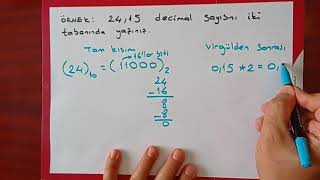 ÖRNEK: 24,15 decimal sayısını iki
tabanında yazınız.
Tam kısım
16'lar biti
(24)₁₀ = (11000)₂
24
-16
8
-8
0
virgülden sonrası
0,15 * 2 = 0,